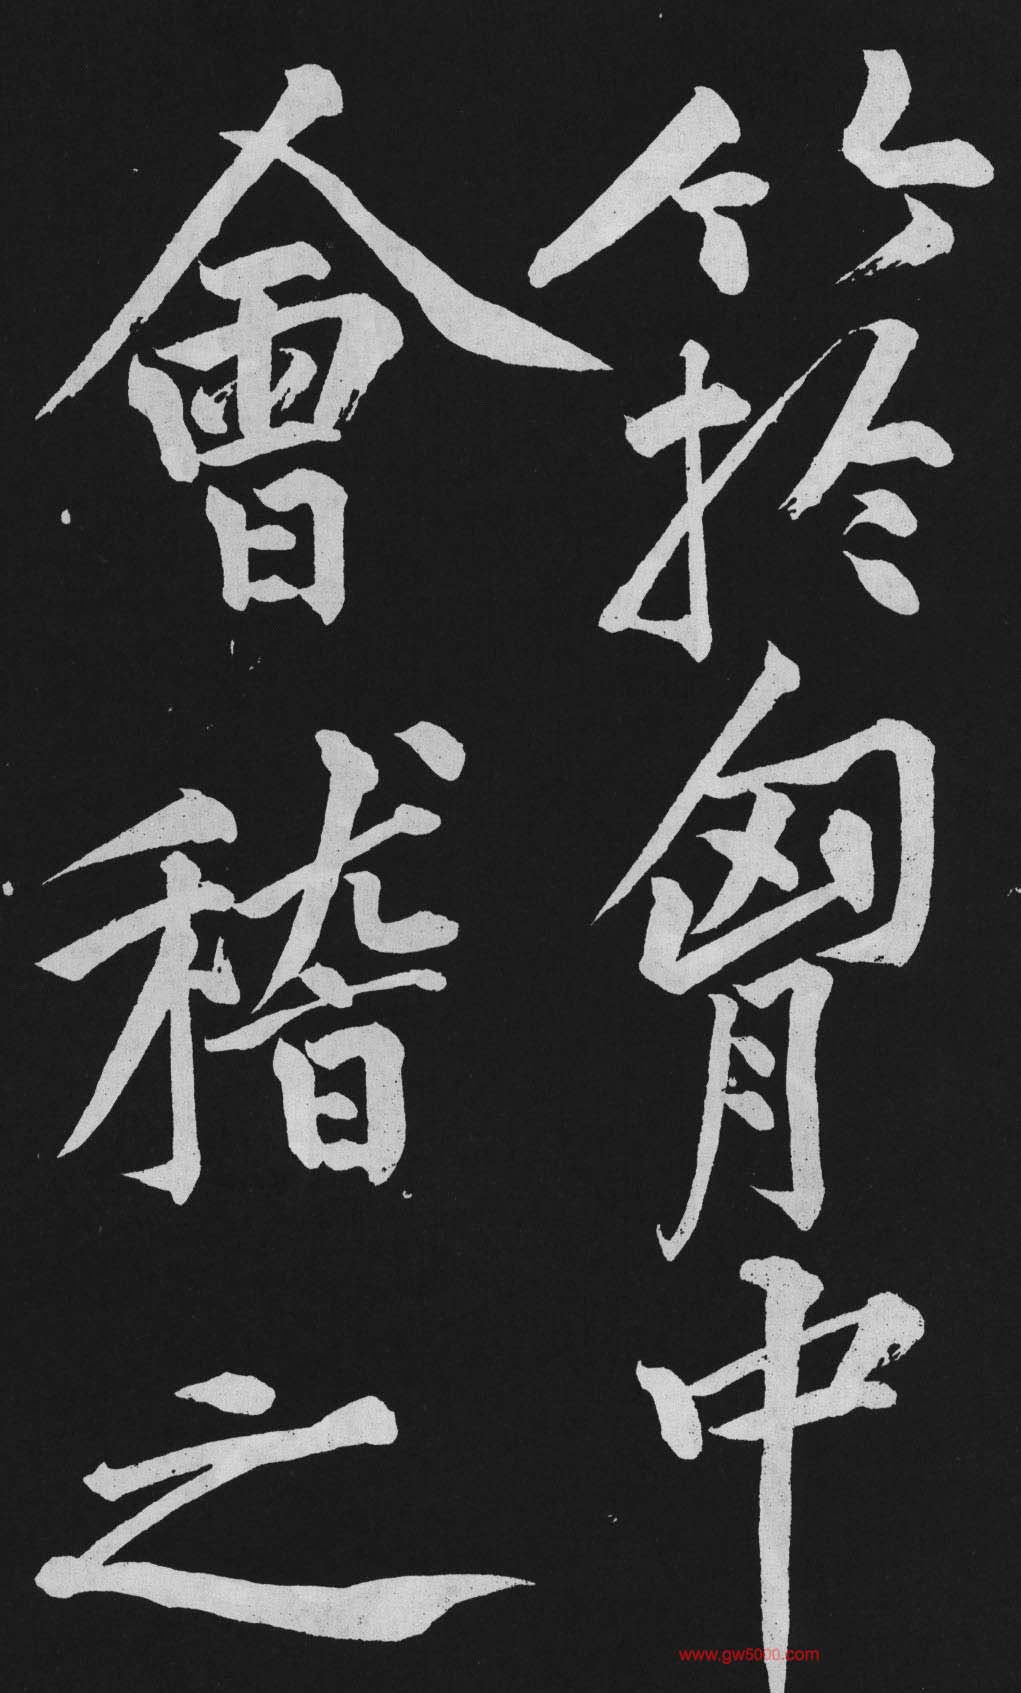 箊胷中
會稽之
www.gw5000.com